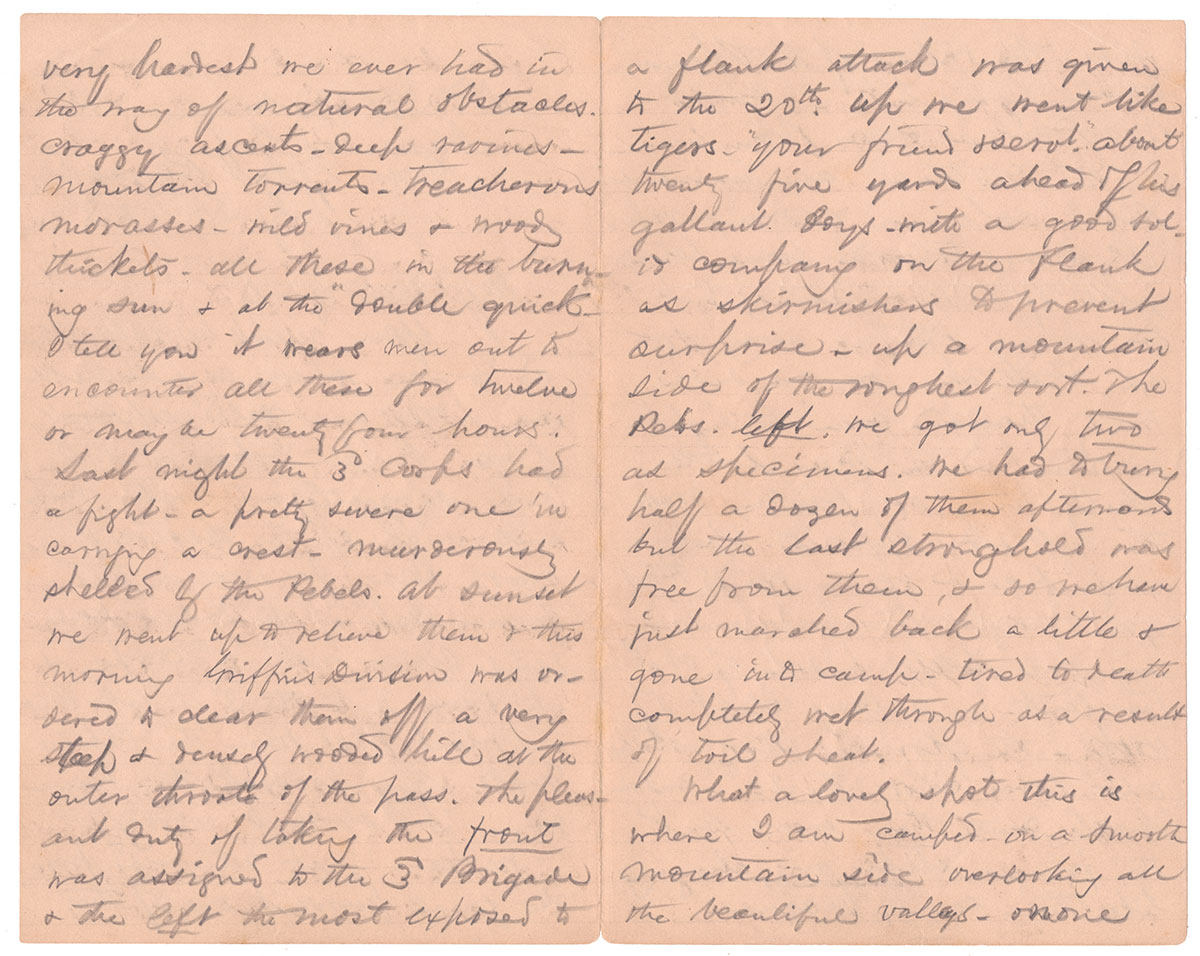 very hardest we ever had in
the way of natural obstacles.
craggy ascents - deep ravines -
mountain torrents - treacherous
morasses - wild vines & woody
thickets - all these in the burn-
ing sun & at the "double quick" -
I tell you it wears men out to
encounter all these for twelve
or maybe twenty four hours.
Last night the 3d Corps had
a fight - a pretty severe one in
carrying a crest - murderously
shelled by the Rebels. At sunset
we went up to relieve them & this
morning Griffins Division was or-
dered to clear them off a very
steep & densely wooded hill at the
outer throat of the pass. The pleas-
ant duty of taking the front
was assigned to the 3d Brigade
& the left the most exposed to
a flank attack was given
to the 20th. up we went like
tigers - "your friend & servt." about
twenty five yards ahead of his
gallant boys - with a good sol-
id company on the flank
as skirmishers to prevent
surprise - up a mountain
side of the roughest sort. The
Rebs. left. we got only two
as specimens. We had to bury
half a dozen of them afterwards
but the last stronghold was
free from them, & so we have
just marched back a little &
gone into camp - tired to death
completely wet through as a result
of toil & heat.
What a lovely spot this is
where I am camped - on a smooth
mountain side overlooking all
the beautiful valleys - on one